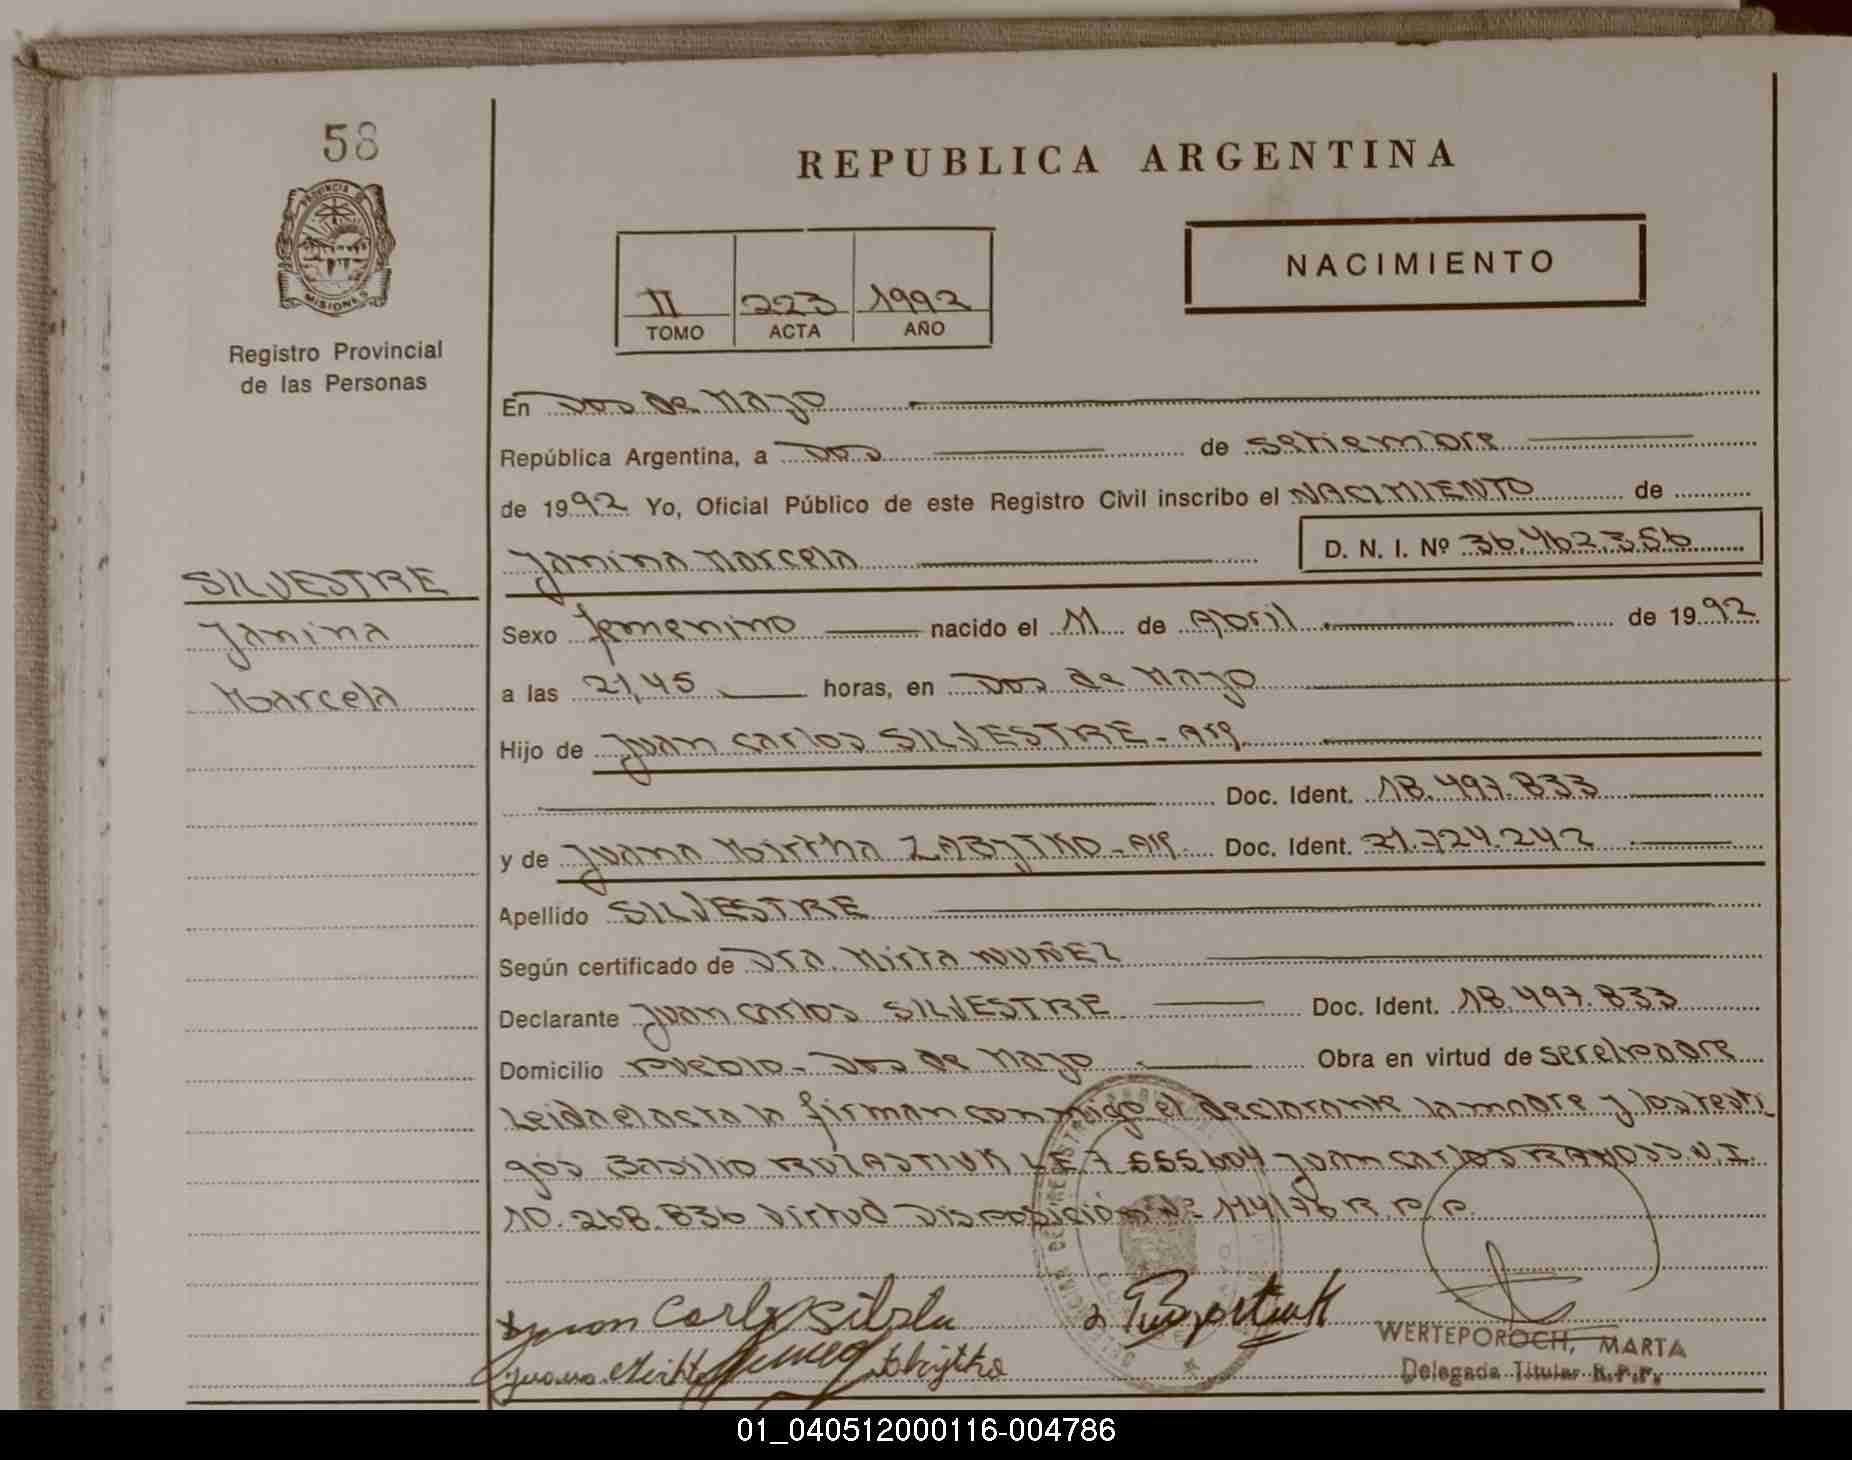 58
PROVINCIA DE
MISIONES
Registro Provincial
de las Personas
SILVESTRE
Janina
Marcela
REPUBLICA ARGENTINA
II 223 1992
TOMO ACTA AÑO
NACIMIENTO
En Dos de Mayo
República Argentina, a Dos de setiembre
de 1992 Yo, Oficial Público de este Registro Civil inscribo el NACIMIENTO de
Janina Marcela D. N. I. Nº 36.462.356
Sexo femenino nacido el 11 de Abril de 1992
a las 21,45 horas, en Dos de Mayo
Hijo de Juan Carlos SILVESTRE - Arg.
Doc. Ident. 18.497.833
y de Juana Mirtha ZABYTKO - Arg. Doc. Ident. 21.724.242
Apellido SILVESTRE
Según certificado de Dra. Mirta NUÑEZ
Declarante Juan Carlos SILVESTRE Doc. Ident. 18.497.833
Domicilio Pueblo - Dos de Mayo Obra en virtud de ser el padre
Leida el acta la firman conmigo el declarante la madre y los testi_
gos Basilio LE 7.555604 Juan Carlos RAMOS D.N.I.
10.268.836 Virtud Disposición Nº 114/76 R.P.P.
Juan Carlos Silvestre
Juana Mirtha Zabijtko
WERTEPOROCH, MARTA
Delegada Titular R.P.P.
01_040512000116-004786